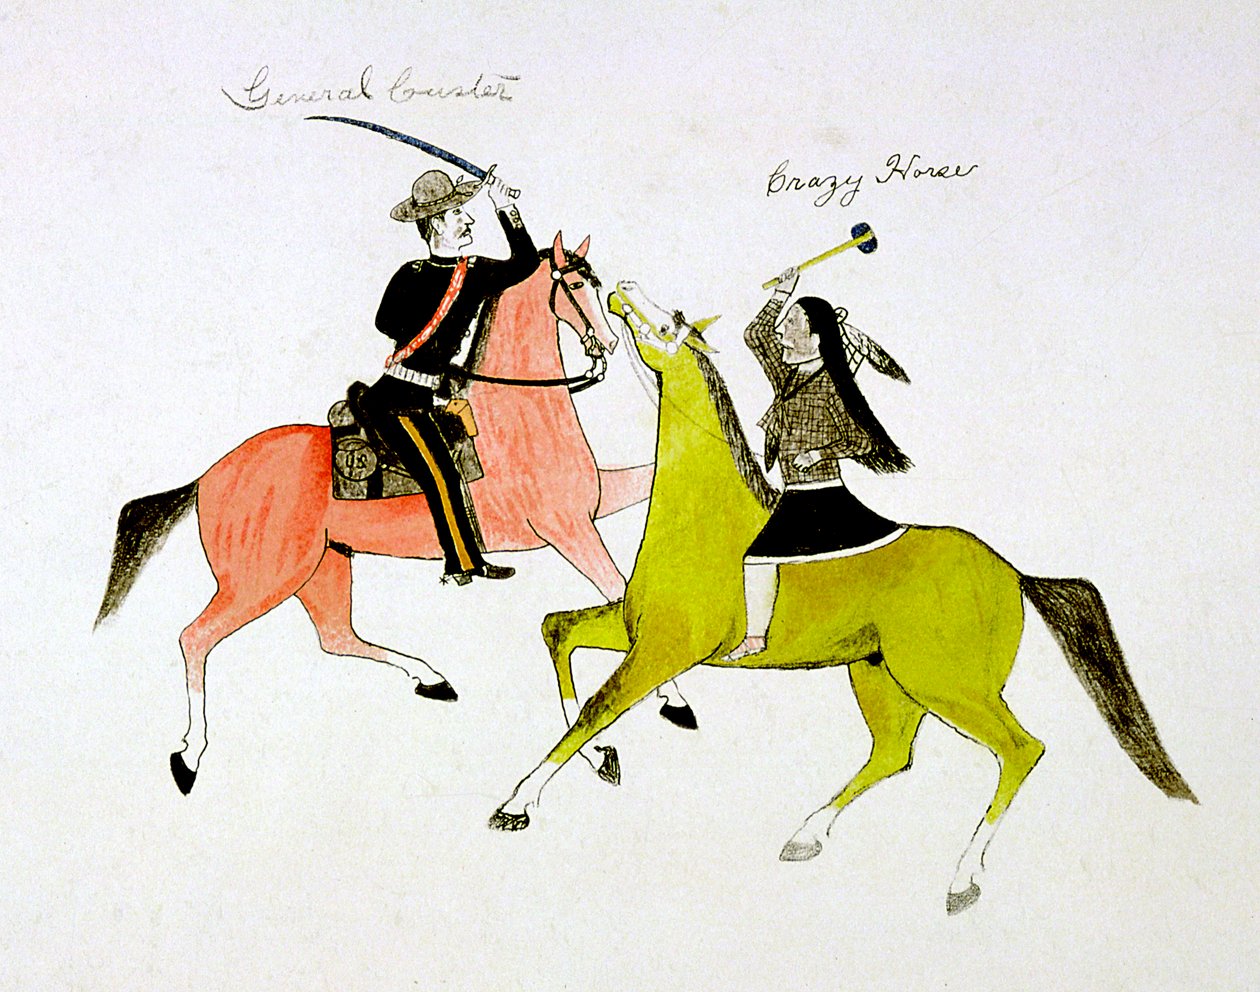 General Custer
Crazy Horse
US